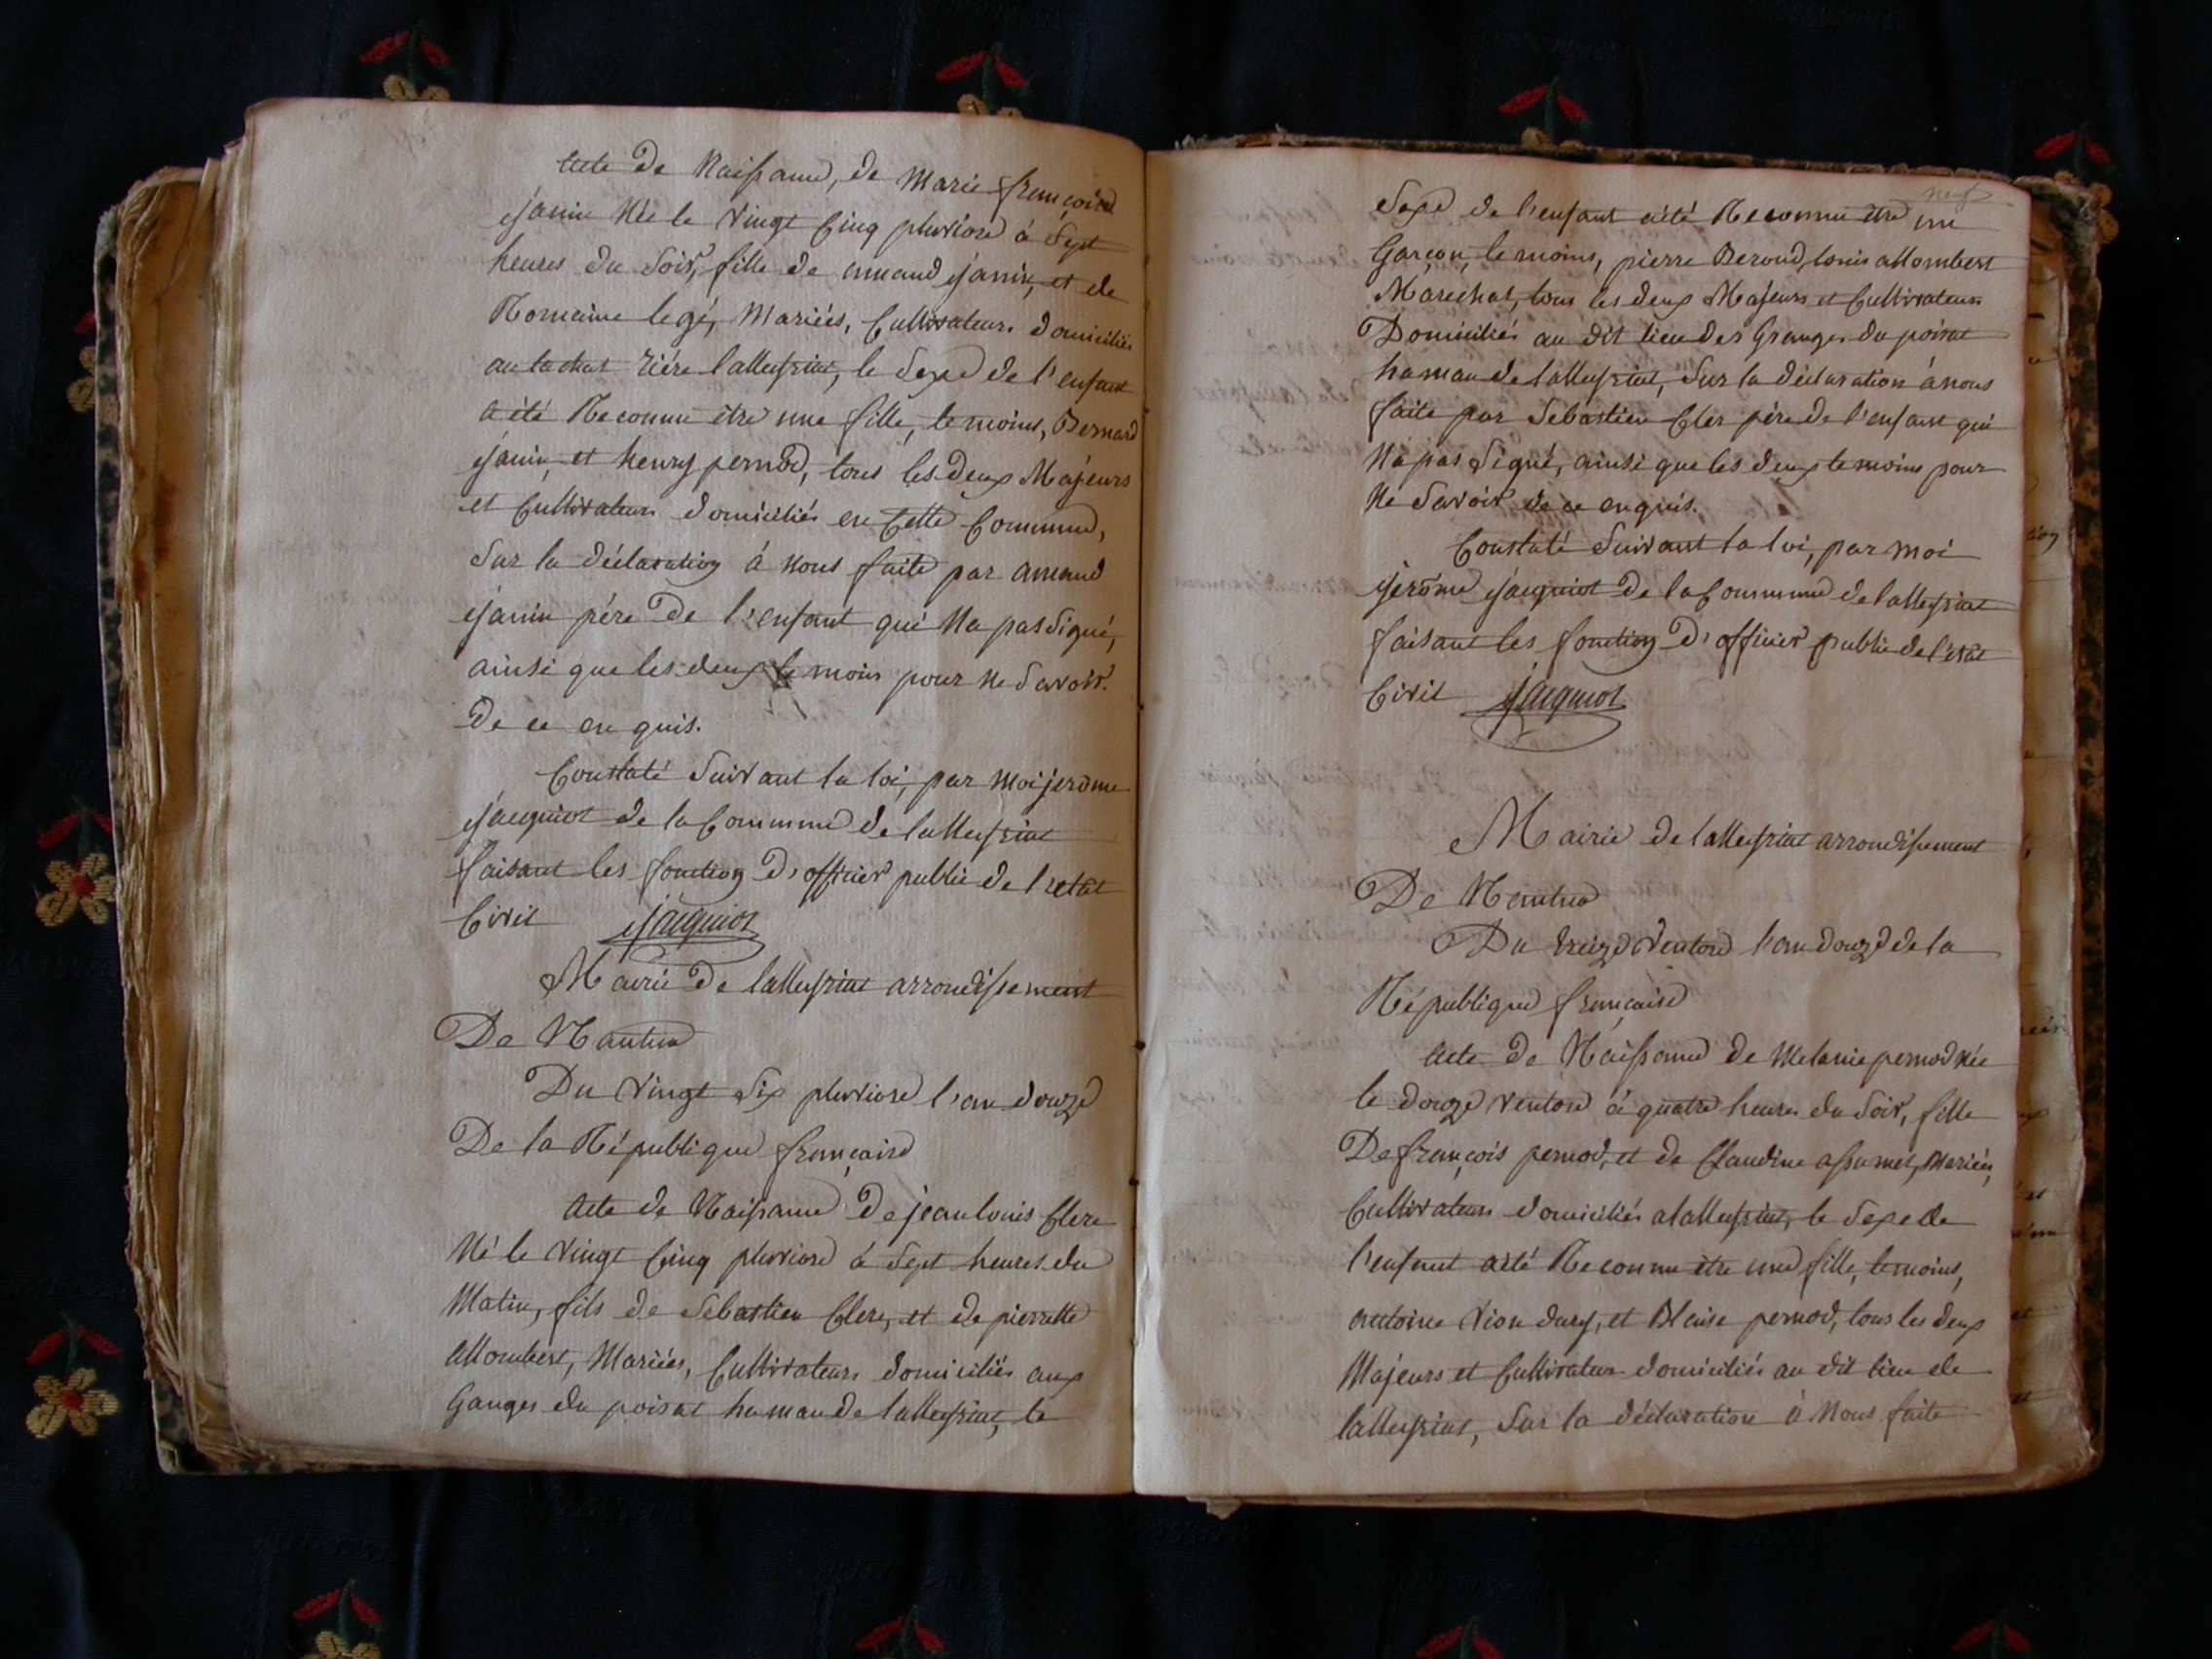 acte De Naissance, de Marie françoise
janin Née le vingt Cinq pluviose à Sept
heures du Soir, fille de amand janin, et de
Romaine legé, Mariées, Cultivateurs domiciliés
au lachat rière lalleyriat, le Sexe de l'enfant
a été Reconnu être une fille, temoins, Bernard
janin, et henry pernod, tous les deux Majeurs
et Cultivateurs domiciliés en Cette Commune,
Sur la déclaration à Nous faite par amand
janin père De l'enfant qui Na pas Signé,
ainsi que les deux temoins pour Ne Savoir.
De ce en quis.
Constaté Suivant la loi, par Moi jerome
jacquiot de la Commune de lalleyriat
faisant les fonction D'officier public de l'etat
Civil jacquiot
Mairie De lalleyriat arrondissement
De Nantua
Du vingt Six pluviose l'an douze
De la République française
Acte de Naissance De jean louis Clerc
Né le vingt Cinq pluviose à Sept heures du
Matin, fils de Sébastien Clerc, et de pierrette
allombert, Mariées, Cultivateurs domiciliés aux
Ganges du poisat hamau de lalleyriat, le
neuf
Sexe de l'enfant aété Reconnu être un
Garçon, temoins, pierre Beroud, louis allombert
Maréchal, tous les deux Majeurs et Cultivateurs
Domiciliés au dit lieu des Granges du poisat
hamau de lalleyriat, Sur la déclaration ànous
faite par Sebastien Cler père de l'enfant qui
Na pas Signé, ainsi que les deux temoins pour
Ne Savoir de ce enquis.
Constaté Suivant la loi, par moi
jerôme jacquiot De la Commune de lalleyriat
faisant les fonction D'officier public de l'etat
Civil jacquiot
Mairie de lalleyriat arrondissement
De Nantua
Du treize Ventose l'an douze de la
République française
Acte De Naissance de Melanie pernod Née
le douze ventose à quatre heures du Soir, fille
De françois pernod, et de Claudine assumel, Mariées,
Cultivateurs domiciliés alalleyriat, le Sexe de
l'enfant aété Reconnu être une fille, temoins,
antoine vion dury, et Blaise pernod, tous les deux
Majeurs et Cultivateurs domiciliés au dit lieu de
lalleyriat, Sur la déclaration à Nous faite